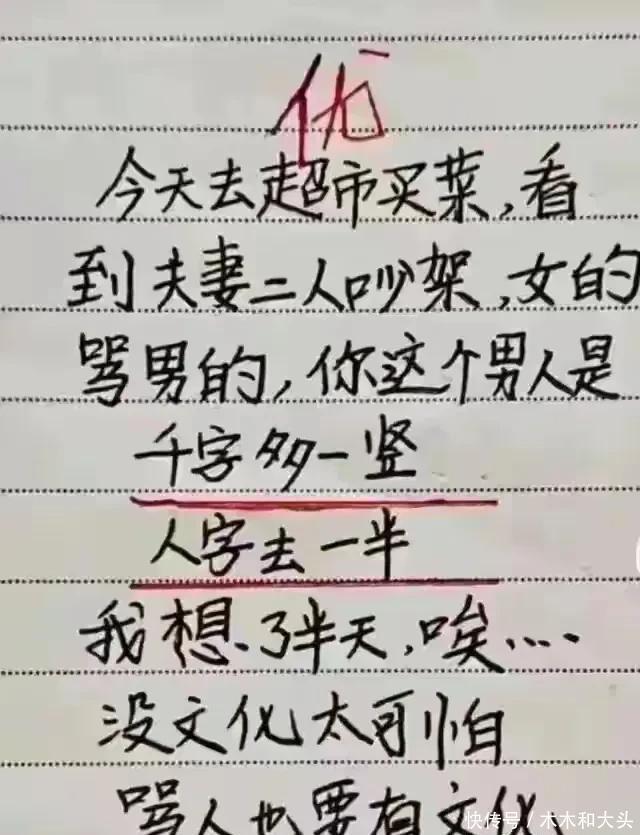 优
今天去超市买菜,看
到夫妻二人吵架,女的
骂男的,你这个男人是
千字多一竖
人字去一半
我想了半天,唉....
没文化太可怕
骂人也要有文化
快传号/木木和大头